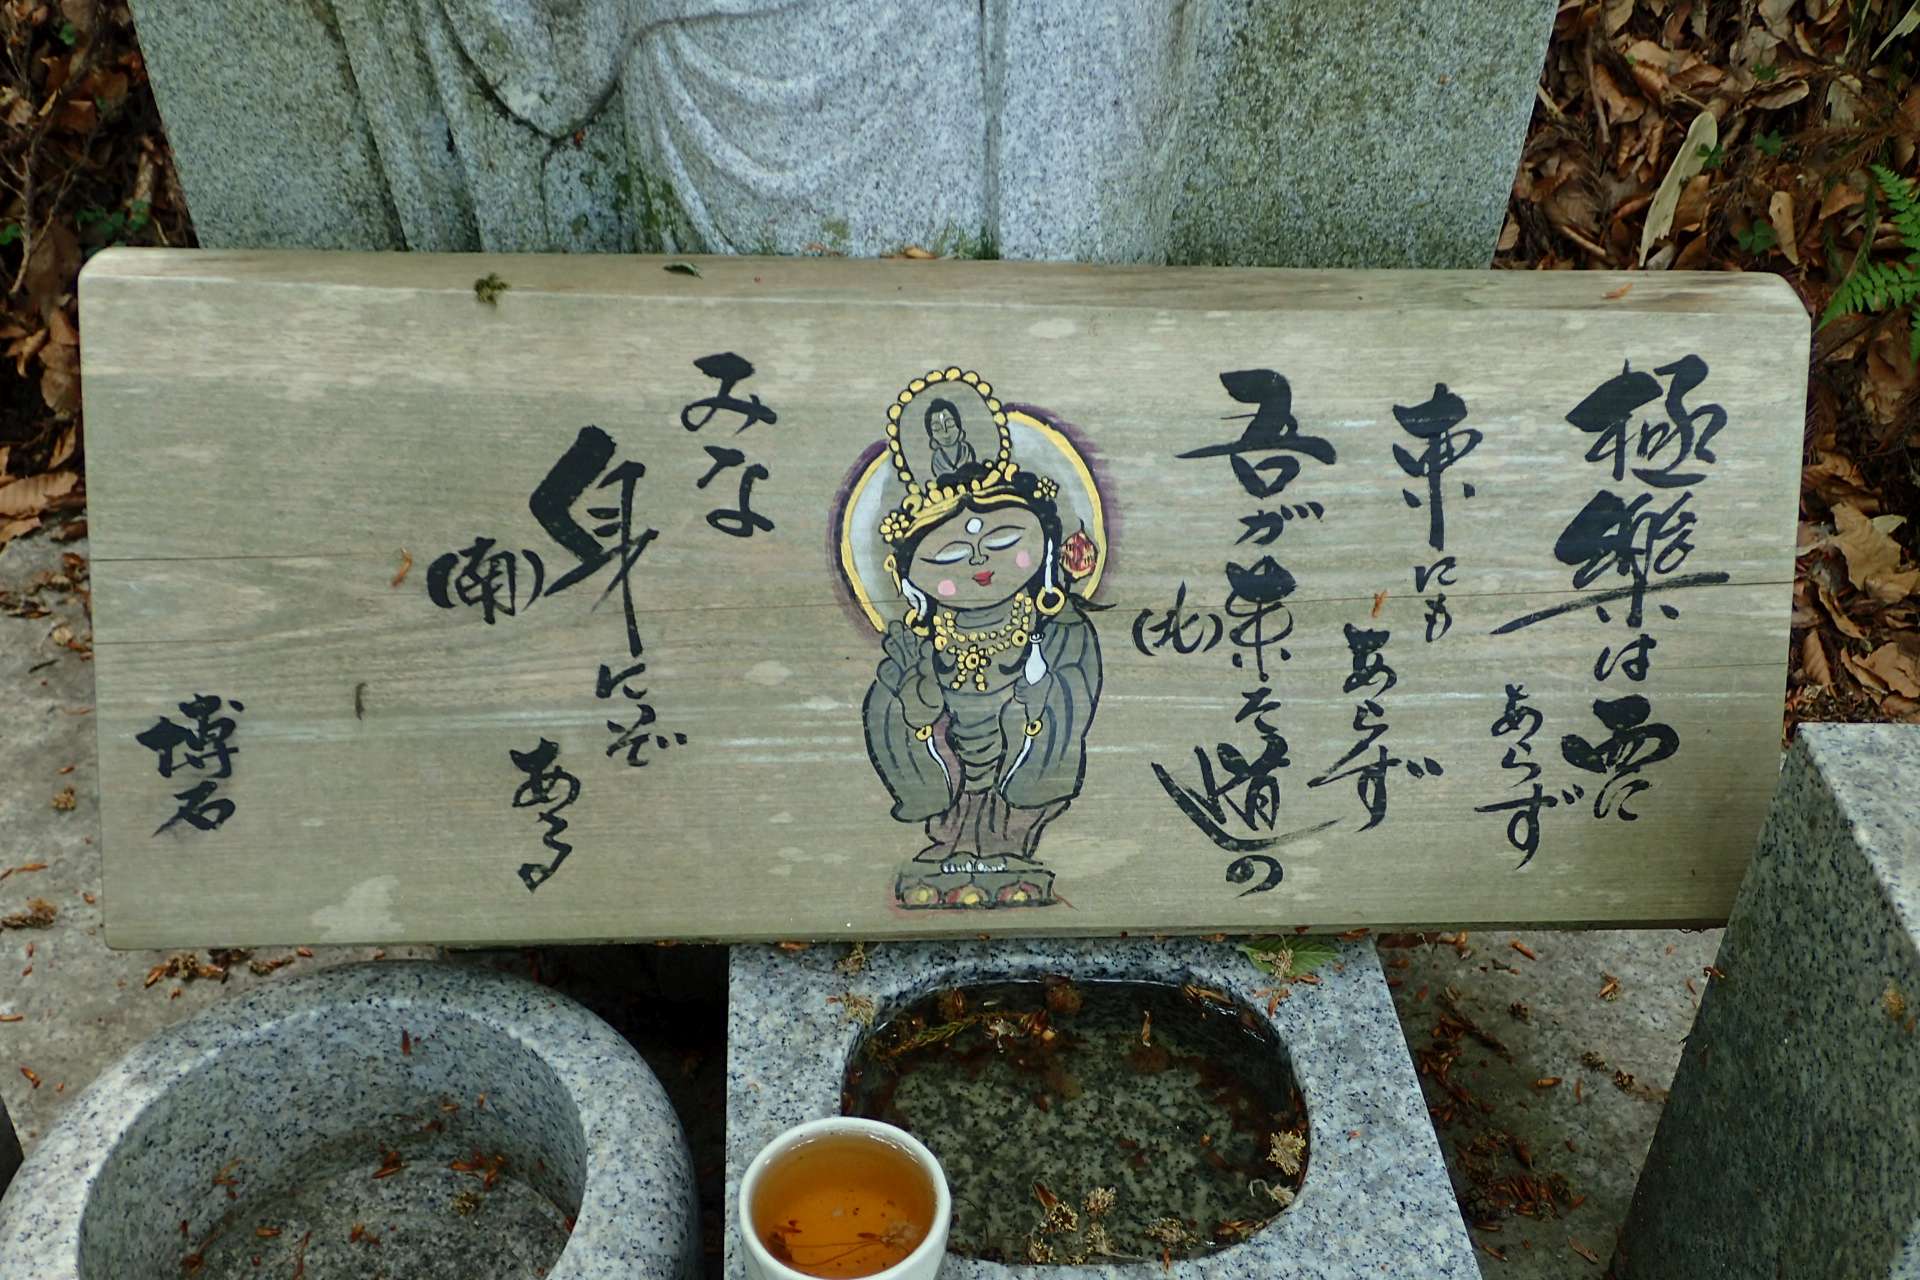 極樂は西に
あらず
東にも
あらず
吾が来た道の
(北)
みな
身にぞ
(南)
ある
博石